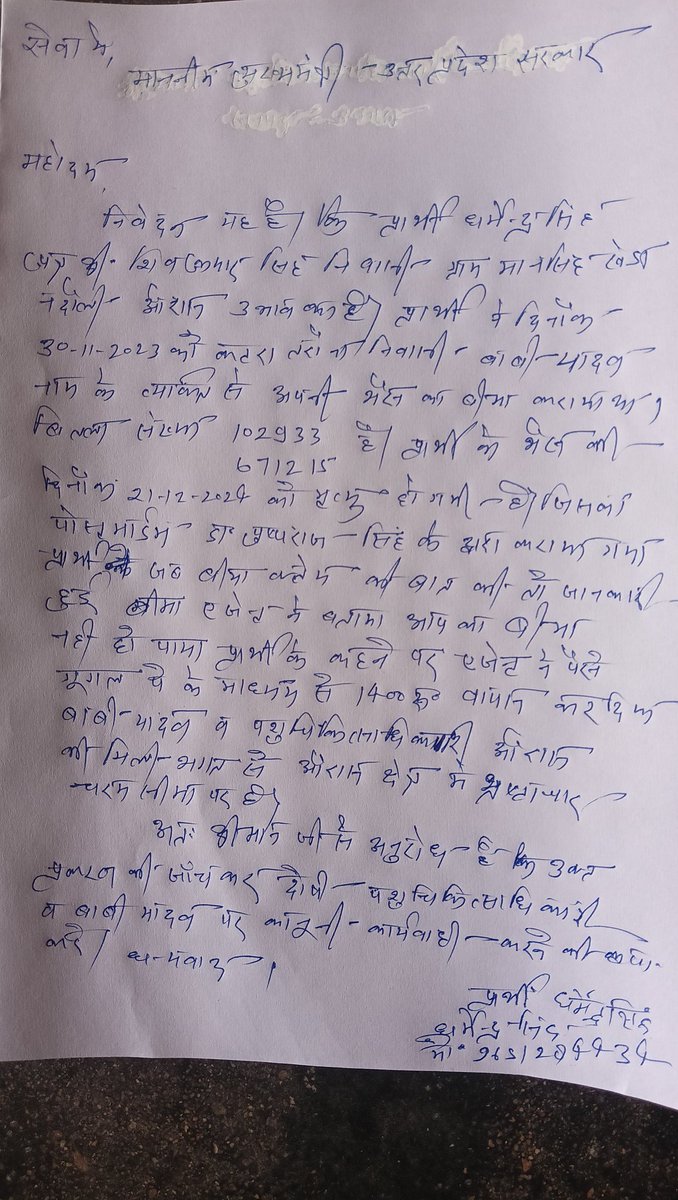 सेवा मे,
माननीय मुख्यमंत्री उत्तर प्रदेश सरकार
महोदय,
निवेदन यह है। कि प्रार्थी धर्मेन्द्र सिंह
पुत्र श्री शिवकुमार सिंह निवासी ग्राम मानसिंह खेडा
औरास उन्नाव का है। प्रार्थी ने दिनाँक
30-11-2023 को कटरा तरौना निवासी बाबी यादव
नाम के व्यक्ति से अपनी भैंस का बीमा कराया था।
बिल्ला संख्या 102933 है। प्रार्थी के भैंस की
671215
दिनाँक 21-12-2024 को मृत्यु हो गयी है। जिसका
पोस्टमार्डम डा० पुष्पराज सिंह के द्वारा कराया गया
प्रार्थी ने जब बीमा क्लेम की बात की तो जानकारी
हुई बीमा एजेन्ट ने बताया आप का बीमा
नही हो पाया प्रार्थी के कहने पर एजेन्ट ने पैसे
गूगल पे के माध्यम से 1400 रू० वापस कर दिया
बाबी यादव व पशुचिकित्साधिकारी औरास
की मिली भगत से औरास क्षेत्र मे भ्रष्टाचार
चरम सीमा पर है।
अतः श्रीमान जी से अनुरोध है कि उक्त
प्रकरण की जाँच कर दोषी पशुचिकित्साधिकारी
व बाबी यादव पर कानूनी कार्यवाही करने की कृपा
करें। धन्यवाद।
प्रार्थी धर्मेन्द्र सिंह
धर्मेन्द्र सिंह